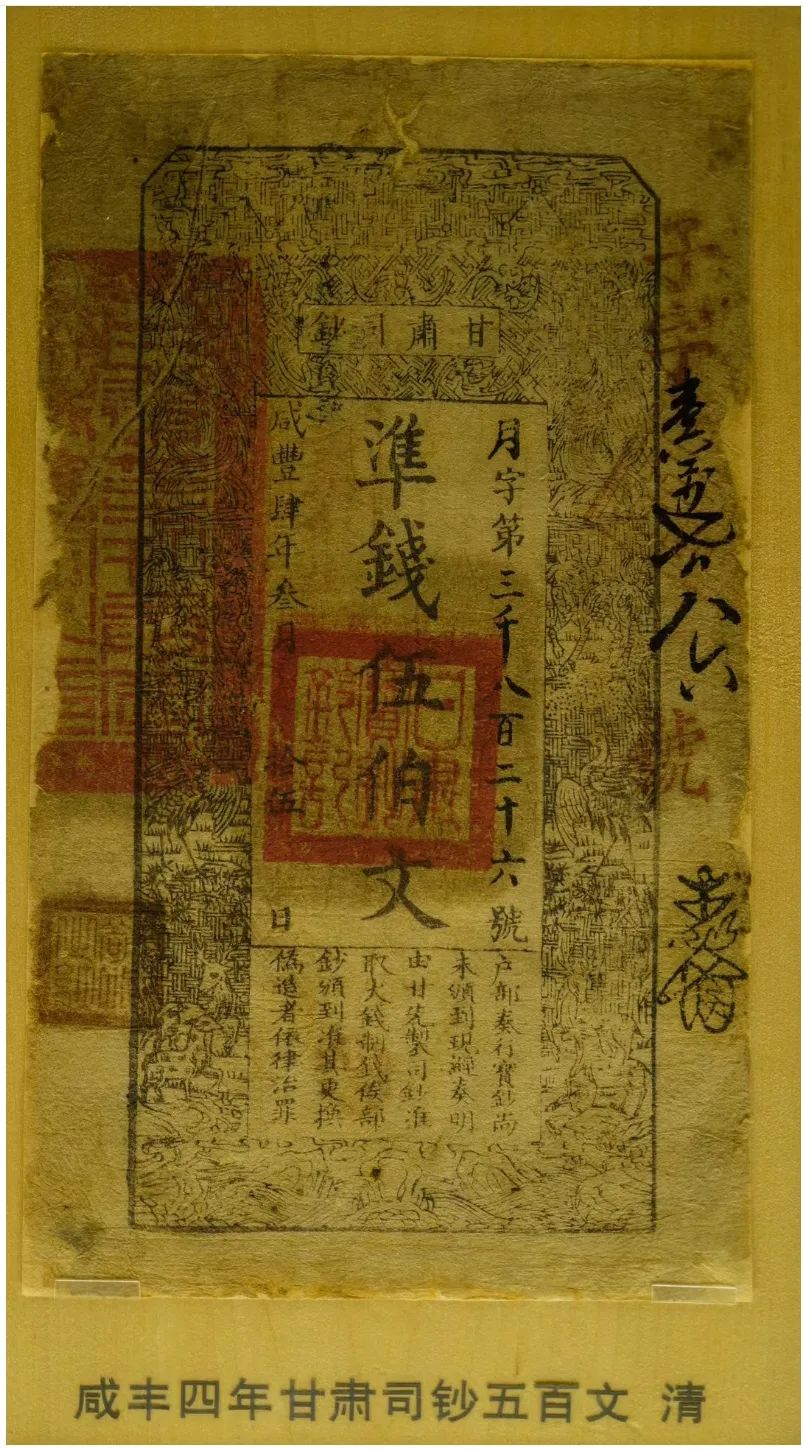 甘肅司鈔
月字第三千八百二十六號
準錢伍伯文
咸豐肆年叁月拾伍日
戶部奏行寶鈔尚
未頒到現經奏明
由甘先製司鈔准
取大錢制錢俟部
鈔頒到准其更換
偽造者依律治罪
子字
號
咸丰四年甘肃司钞五百文 清